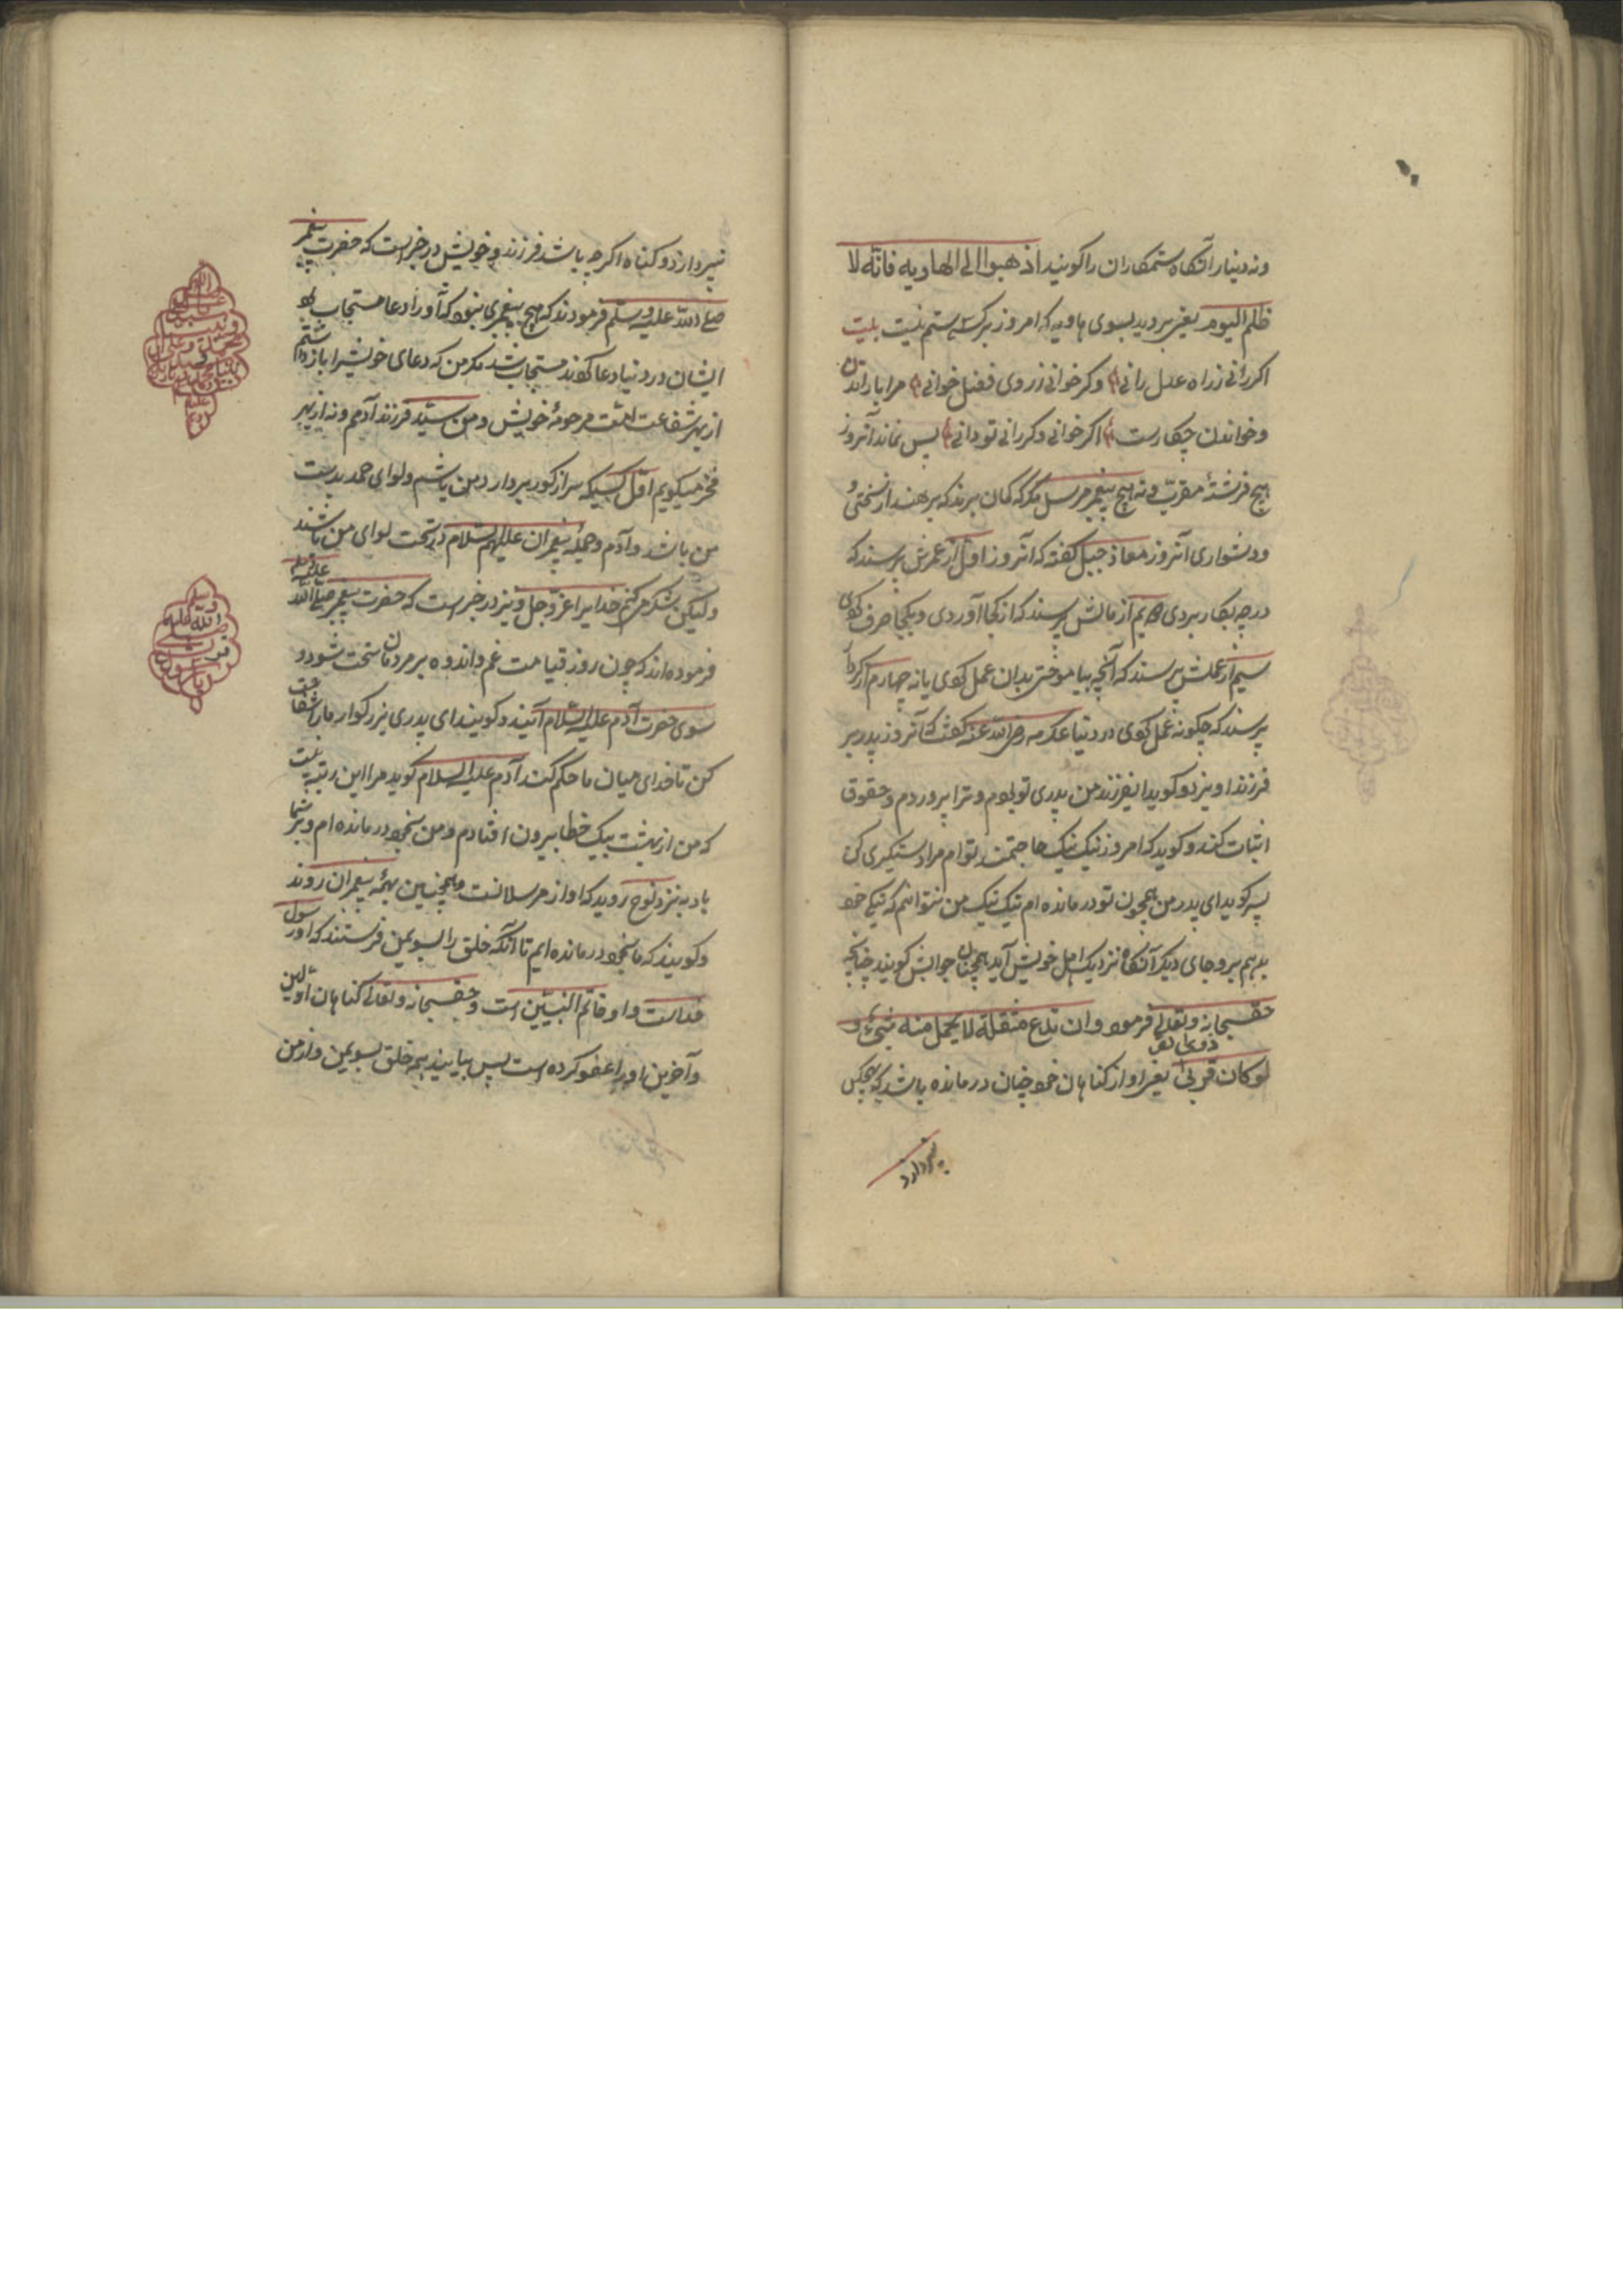 ونه دینار آنگاه ستمکاران را کویند اذهبوا الی الهاویه فانّه لا
ظلم الیوم یعنی بروید بسوی هاویه که امروز بر کسی ستم نیست بیت
اکر رانی ز راه عدل رانی وکر خوانی ز روی فضل خوانی مرا با راندن
وخواندن چکارست اکر خوانی وکر رانی تو دانی پس نماند آنروز
هیچ فرشتۀ مقرب ونه هیچ پیغمبر مرسل مکر که کمان برند که نرهند از سختی
ودشواری آنروز معاذ جبل کفته که آنروز اول از عمرش پرسند که
در چه بکار بردی دویم از مالش پرسند که از کجا آوردی وبکجا صرف کردی
سیم از عملش پرسند که آنچه بیاموختی بدان عمل کردی یا نه چهارم از کردار
پرسند که چکونه عمل کردی در دنیا عکرمه رضی الله عنه کفت که آنروز پدر بر
فرزند آویزد و کوید ای فرزند من پدری تو بودم وترا پروردم وحقوق
اثبات کند و کوید که امروز نیک نیک حاجتمند توام مرا دستکیری کن
پسر کوید ای پدر من همچون تو درمانده ام نیک نیک من نتوانم که نیکی خود
بدهم برو جای دیکر آنگاه نزدیک اهل خویش آید همچنان جوابش کویند چنانچه
حق سبحانه وتعالی فرمود وان تدع مثقلة الی حملها لا یحمل منه شیء و
لو کان ذا قربی یعنی او از کناهان خود چنان درمانده باشد که بهیچکس
نپردازد
نپردازد و کناه اکرچه باشد فرزند و خویش در خبر است که حضرت پیغمبر
صلی الله علیه وسلم فرمودند که هیچ پیغمبری نبود که او را دعا مستجاب بود
ایشان در دنیا دعا کردند مستجاب شد مکر من که دعای خویش را باز داشتم
از بهر شفاعت امت مرحومۀ خویش ومن سید فرزند آدمم ونه از بهر
فخر میکویم اول کسیکه سر از کور بردارد من باشم ولوای حمد بدست
من باشد وآدم وجمله پیغمبران علیهم السلام در تحت لوای من باشند
ولیکن شکر میکنم خدایرا عز وجل ونیز در خبر است که حضرت پیغمبر صلی الله علیه وسلم
فرموده اند که چون روز قیامت غم واندوه بر مردمان سخت شود و
سوی حضرت آدم علیه السلام آیند و کویند ای پدری بزرکوار ما را شفاعت
کن تا خدای میان ما حکم کند آدم علیه السلام کوید مرا این رتبه نیست
که من از بهشت بیک خطا بیرون افتادم ومن بخود درمانده ام وبر شما
باد به نزد نوح روید که او از مرسلانست وهمچنین بهمه پیغمبران روند
و کویند که ما بخود درمانده ایم تا آنکه خلق را بسوی من فرستند که او رسول
خداست واو خاتم النبیین است و حق سبحانه وتعالی کناهان اولین
وآخرین او را عفو کرده است پس بیایند همه خلق بسوی من واز من